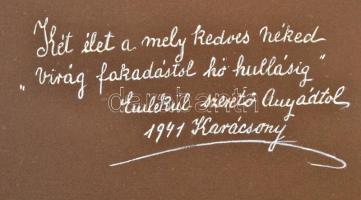 Két élet a mely kedves néked
"Virág fakadástol hó hullásig"
Emlékül szerető Anyádtol
1941 Karácsony